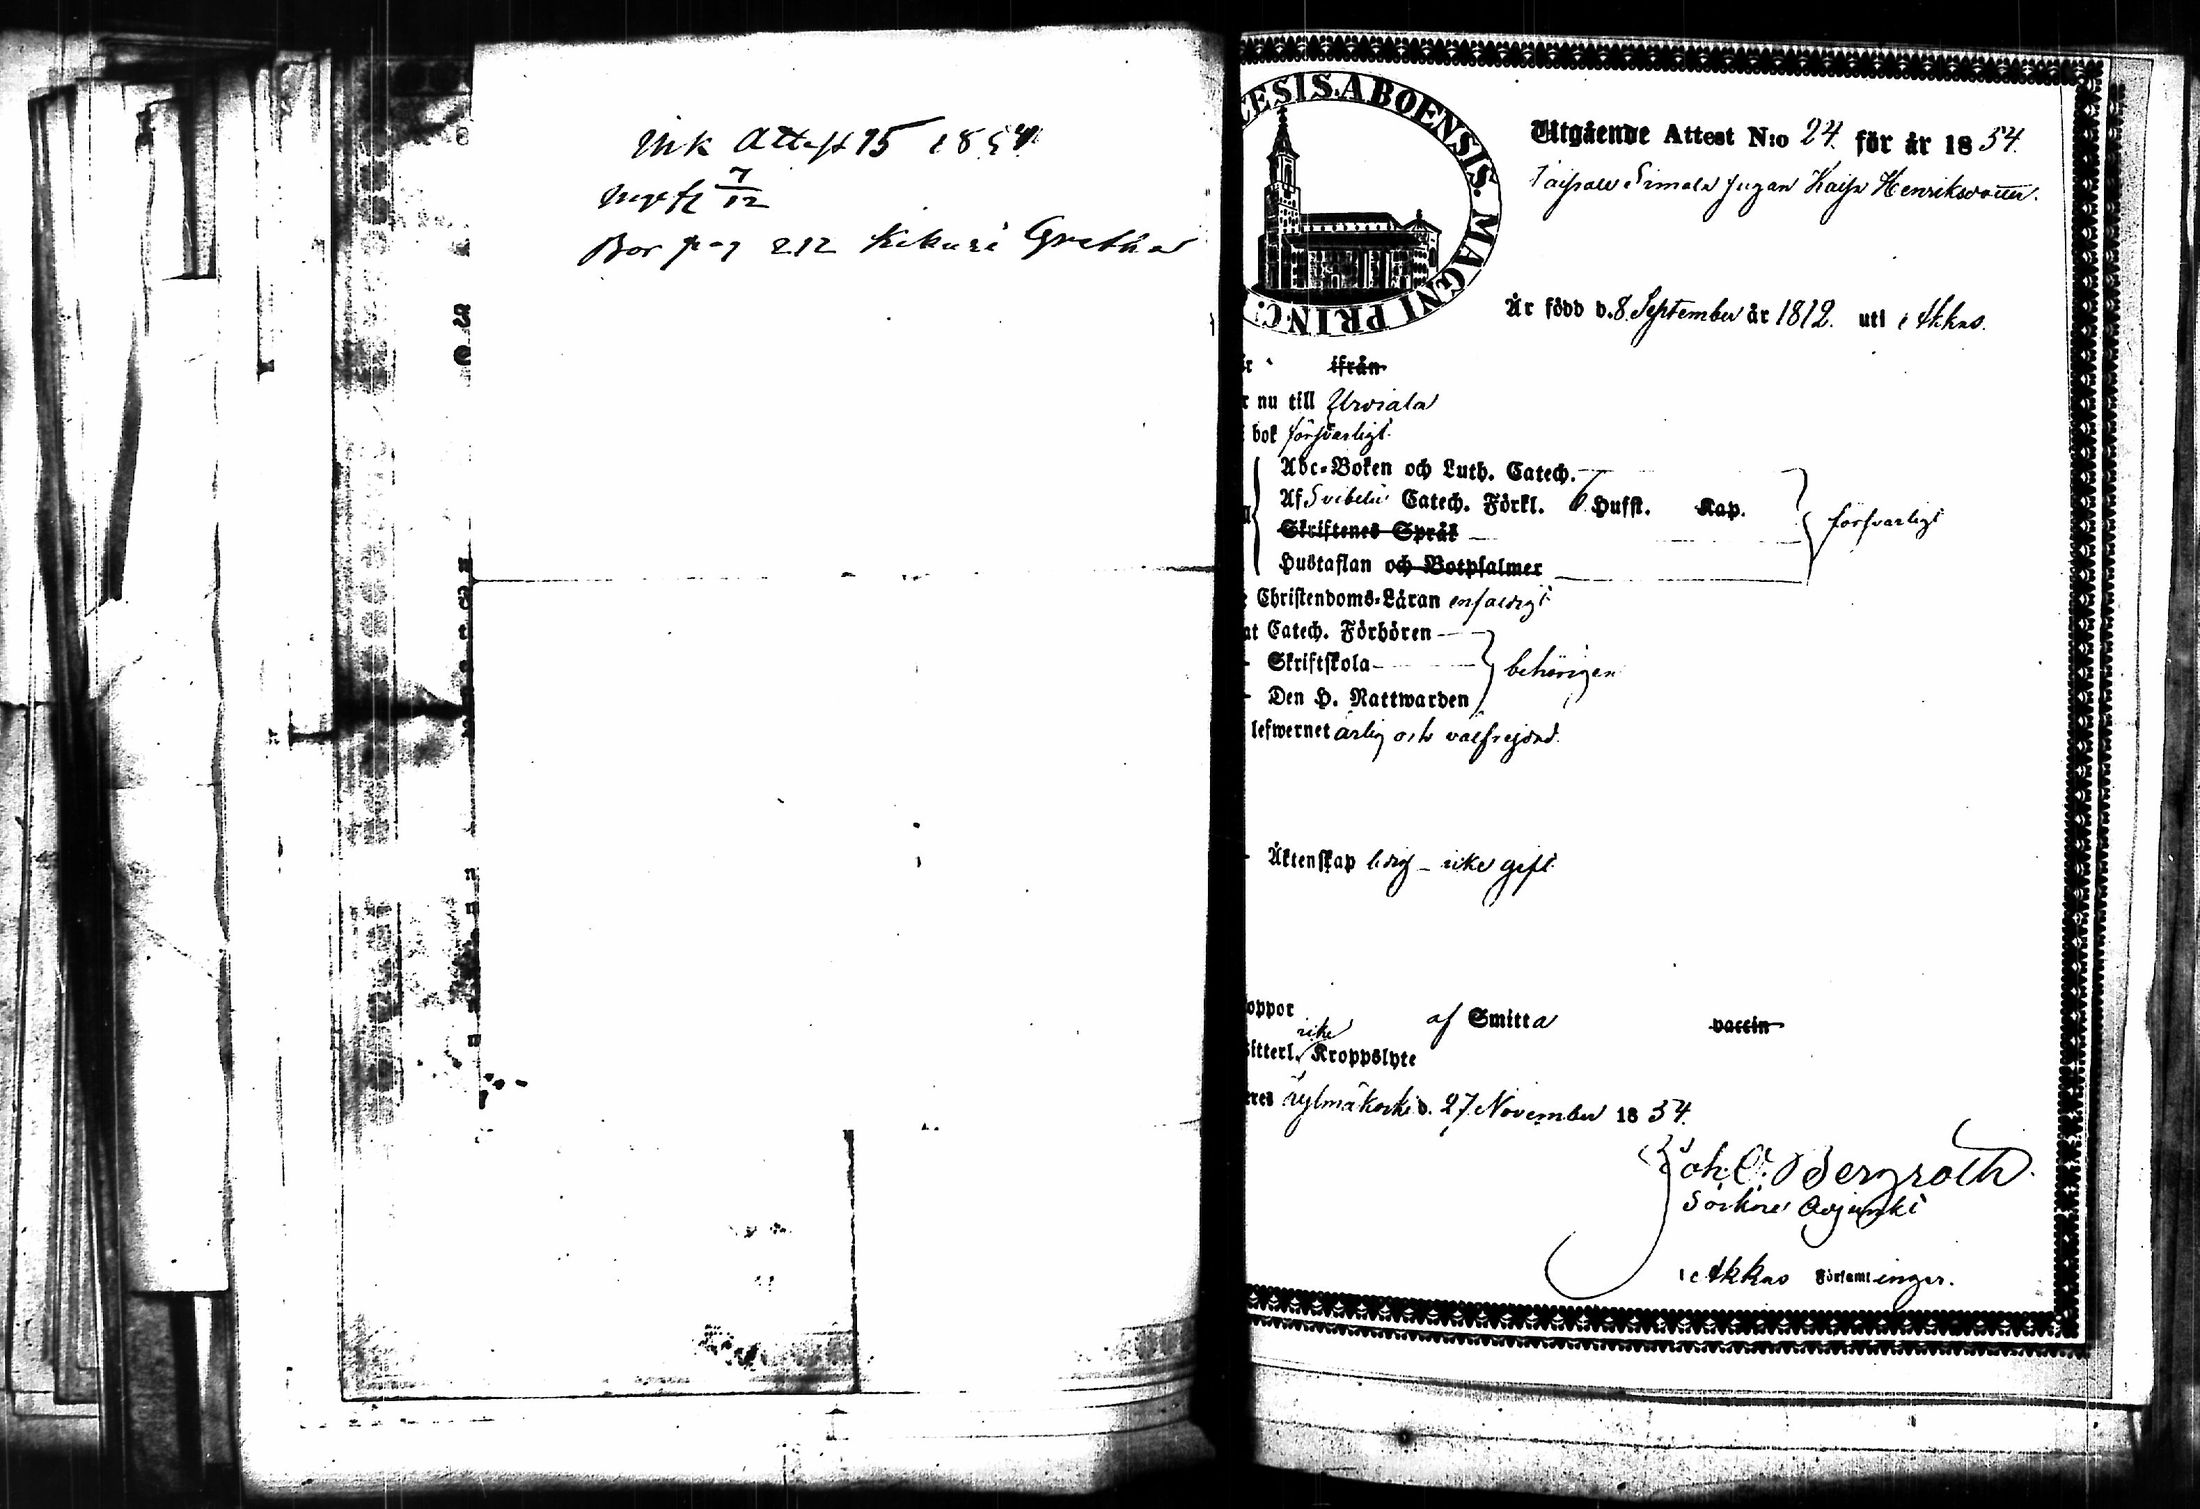 Ink Attest 15 1854
7/12
Bor pag 212 Kikuri Gretha
CESIS. ABOENSIS. MAGNI PRINC.
Utgående Attest N:o 24. för år 1854.
Kaisa Henriksdotter.
Är född d. 8 September år 1812. uti i Akkas.
ifrån
r nu till Urdiala
bok försvarligt.
Abc-Boken och Luth. Catech.
Af Svebelii Catech. Förkl. Husst. Kap. försvarligt
Skriftenes Språk
Hustaflan och Botpsalmer
Christendoms-Läran enfaldigt
at Catech. Förhören
Skriftskola behörigen
Den H. Nattwarden
lefwernet ärlig och välfrejdad.
Äktenskap ledig – icke gift.
oppor af Smitta vaccin
icke
itterl. Kroppslyte
eres Kylmäkoski d. 27 November 1854.
Joh. C. Bergroth.
Adjunkt
i Akkas Församlingar.